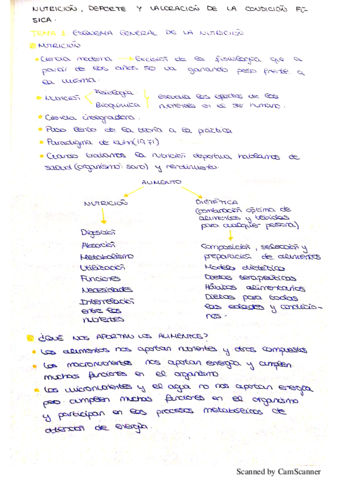 NUTRICIÓN, DEPORTE Y VALORACIÓN DE LA CONDICIÓN FÍ-
SICA.
TEMA 1: ESQUEMA GENERAL DE LA NUTRICIÓN
NUTRICIÓN
Ciencia moderna → Escisión de la fisiología que a
partir de los años 50 va ganando peso frente a
la misma.
Nutrición Fisiología estudia los efectos de los
Bioquímica nutrientes en el ser humano.
Ciencia integradora.
Paso lento de la teoría a la práctica
Paradigma de (1971)
Cuando hablamos de nutrición deportiva hablamos de
salud (organismo sano) y rendimiento.
ALIMENTO
NUTRICIÓN
Digestión
Absorción
Metabolismo
Utilización
Funciones
Necesidades
Interrelación
entre los
nutrientes
DIETÉTICA
(combinación óptima de
alimentos y variadas
para cualquier persona)
Composición, selección y
preparación de alimentos
Modelo dietético
Dietas terapéuticas
Hábitos alimentarios
Dietas para todas
las edades y condicio-
nes.
¿QUÉ NOS APORTAN LOS ALIMENTOS?
Los alimentos nos aportan nutrientes y otros compuestos
Los macronutrientes nos aportan energía y cumplen
muchas funciones en el organismo
Los micronutrientes y el agua no nos aportan energía
pero cumplen muchas funciones en el organismo
y participan en los procesos metabólicos de
obtención de energía.
Scanned by CamScanner